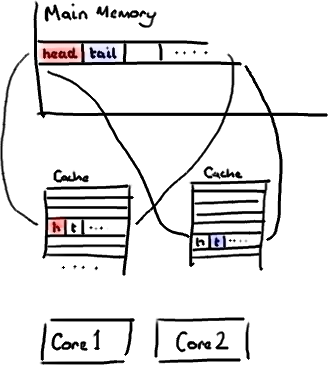 Main Memory
head tail ....
Cache Cache
h t ...
h t ....
....
Core 1 Core 2